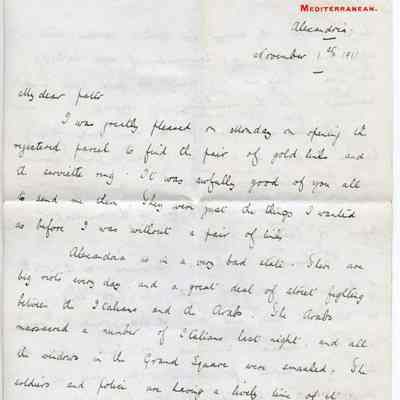 MEDITERRANEAN.
Alexandria.
November 1st 1911
My dear Pater
I was greatly pleased on Monday on opening the
registered parcel to find the pair of gold links and
the serviette ring. It was awfully good of you all
to send me them. They were just the things I wanted
as before I was without a pair of links
Alexandria is in a very bad state. There are
big riots every day and a great deal of street fighting
between the Italians and the Arabs. The Arabs
massacred a number of Italians last night, and all
the windows in the Grand Square were smashed. The
soldiers and police are having a lively time of it